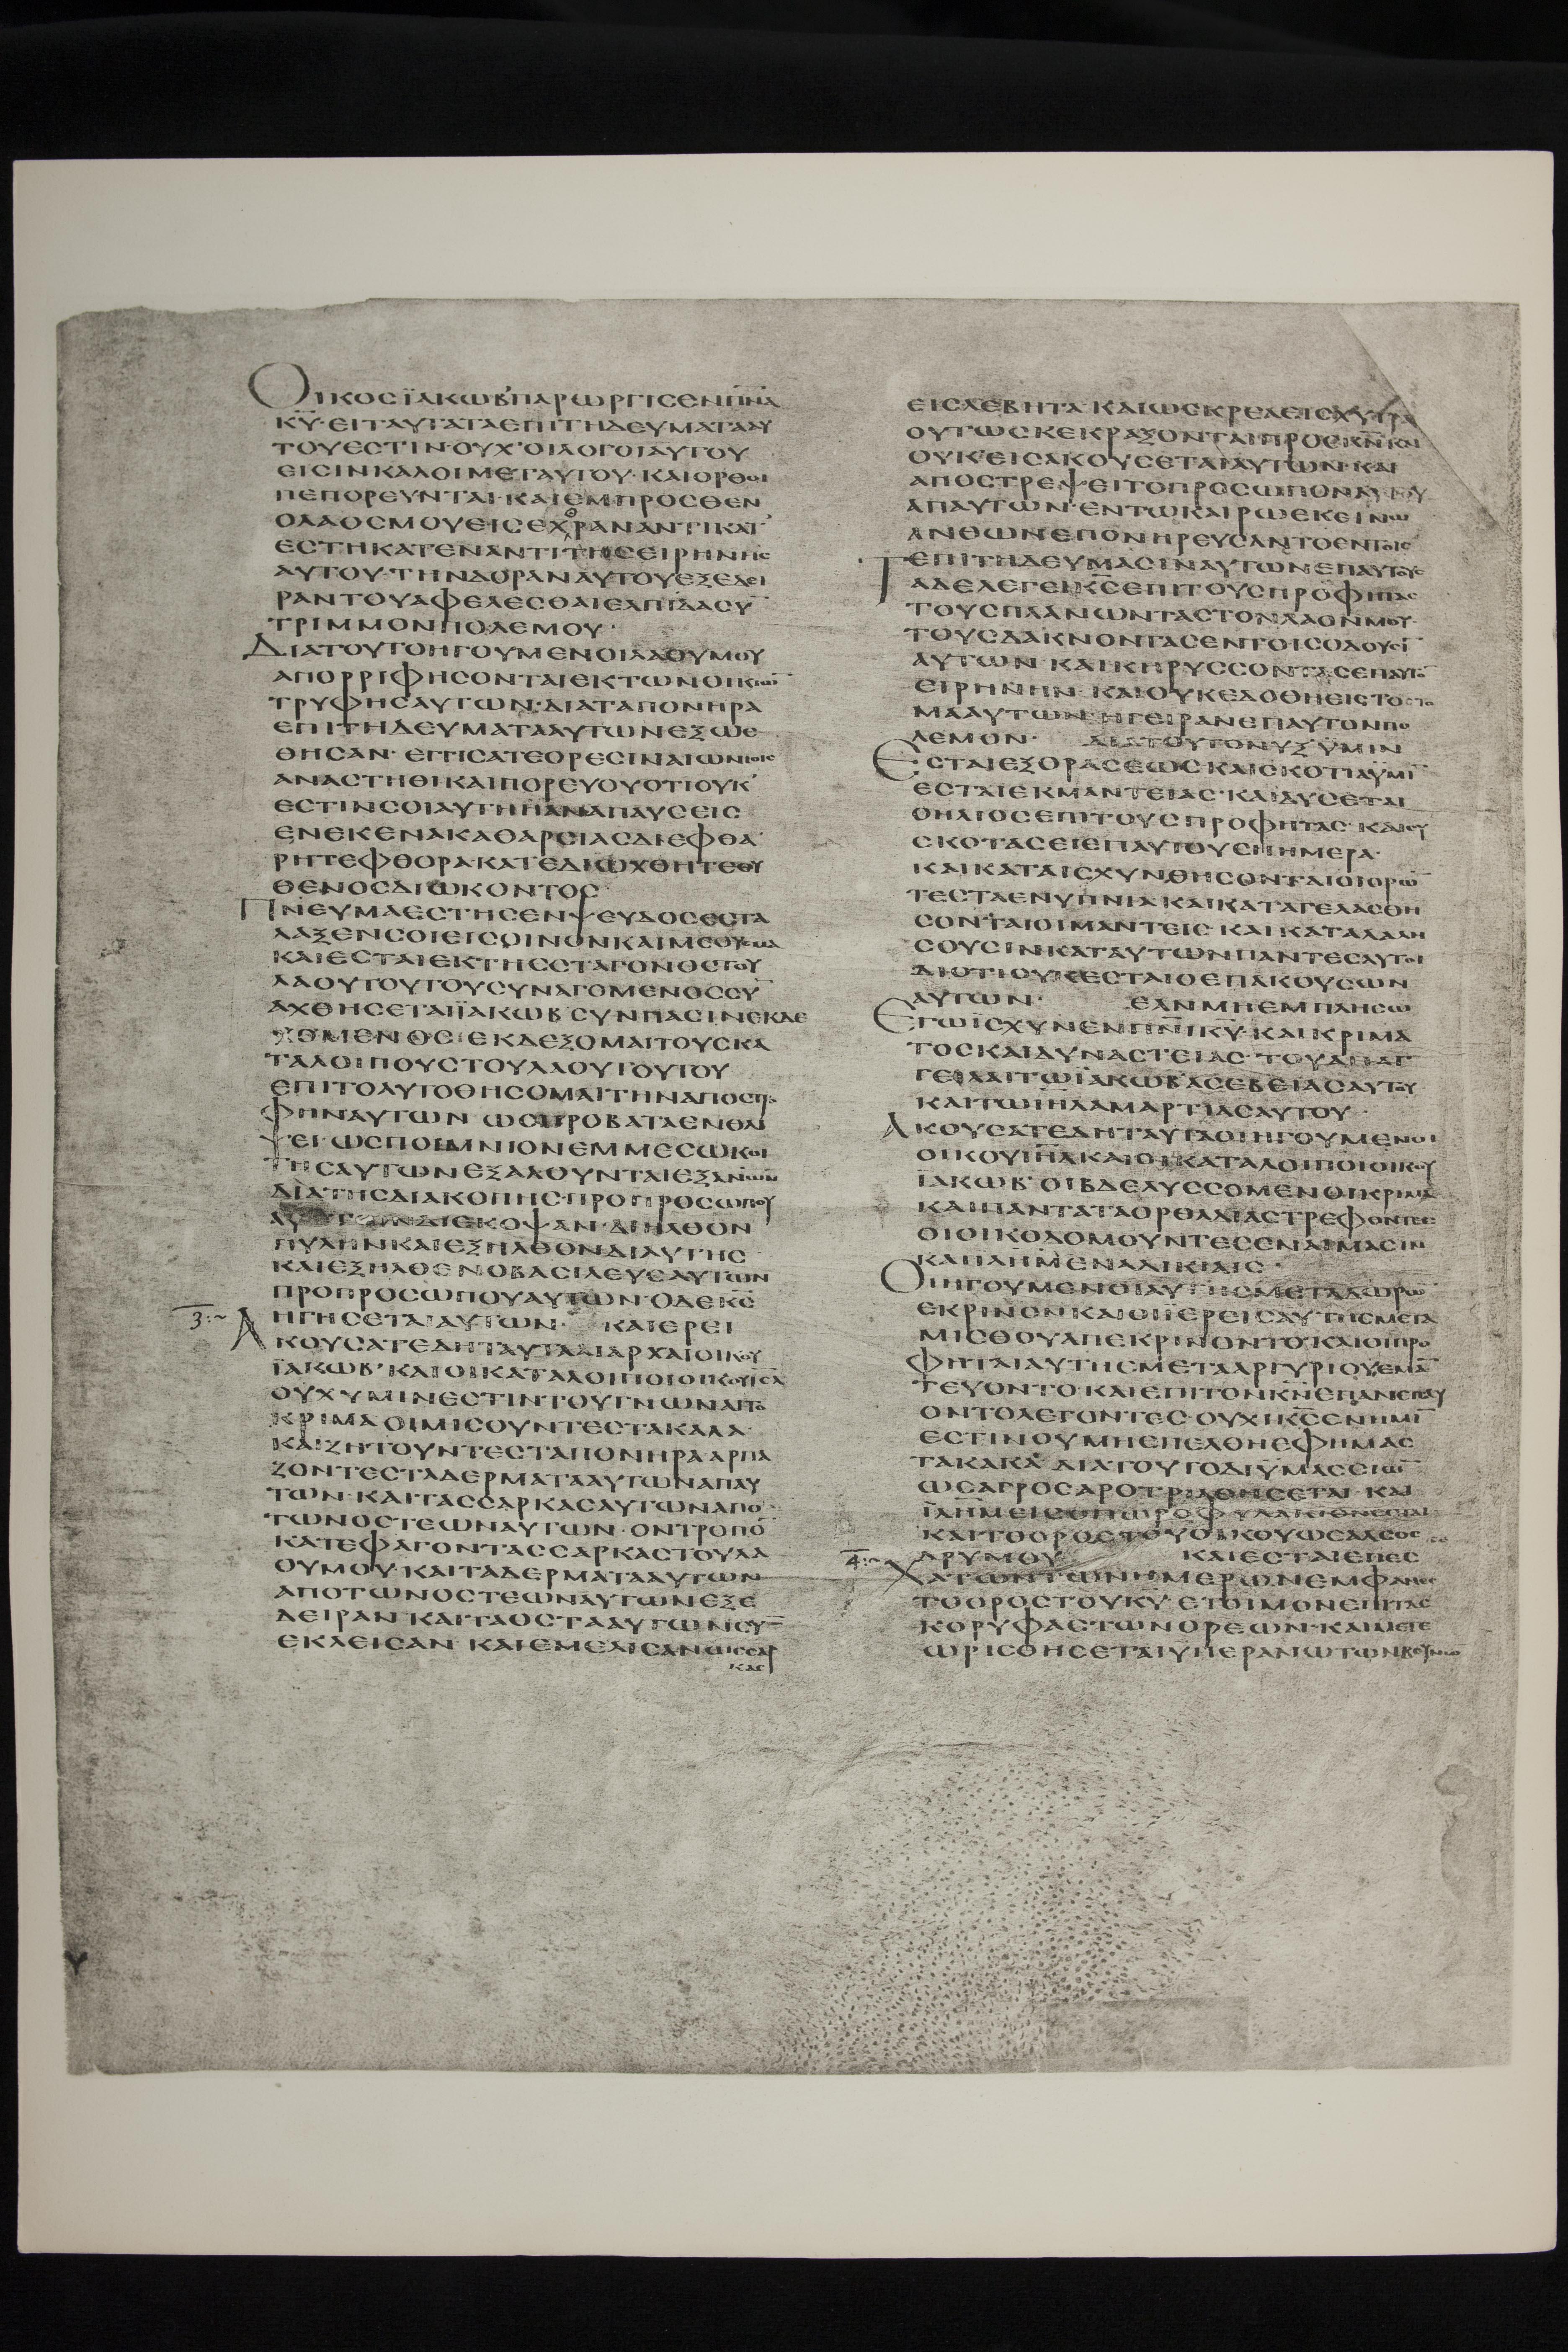 ΟΙΚΟΣ ΪΑΚΩΒ' ΠΑΡΩΡΓΙΣΕΝ ΠΝΑ
ΚΥ· ΕΙ ΤΑΥΤΑ ΤΑ ΕΠΙΤΗΔΕΥΜΑΤΑ ΑΥ
ΤΟΥ ΕΣΤΙΝ· ΟΥΧ' ΟΙ ΛΟΓΟΙ ΑΥΤΟΥ
ΕΙΣΙΝ ΚΑΛΟΙ ΜΕΤ ΑΥΤΟΥ· ΚΑΙ ΟΡΘΟΙ
ΠΕΠΟΡΕΥΝΤΑΙ· ΚΑΙ ΕΜΠΡΟΣΘΕΝ
Ο ΛΑΟΣ ΜΟΥ ΕΙΣ ΕΧΘΡΑΝ ΑΝΤΙΚΑΤ'
ΕΣΤΗ ΚΑΤΕΝΑΝΤΙ ΤΗΣ ΕΙΡΗΝΗΣ
ΑΥΤΟΥ· ΤΗΝ ΔΟΡΑΝ ΑΥΤΟΥ ΕΞΕΔΕΙ
ΡΑΝ ΤΟΥ ΑΦΕΛΕΣΘΑΙ ΕΛΠΙΔΑ ΣΥ
ΤΡΙΜΜΟΝ ΠΟΛΕΜΟΥ·
ΔΙΑ ΤΟΥΤΟ ΗΓΟΥΜΕΝΟΙ ΛΑΟΥ ΜΟΥ
ΑΠΟΡΡΙΦΗΣΟΝΤΑΙ ΕΚ ΤΩΝ ΟΙΚΙΩ̄
ΤΡΥΦΗΣ ΑΥΤΩΝ· ΔΙΑ ΤΑ ΠΟΝΗΡΑ
ΕΠΙΤΗΔΕΥΜΑΤΑ ΑΥΤΩΝ ΕΞΩΣ
ΘΗΣΑΝ· ΕΓΓΙΣΑΤΕ ΟΡΕΣΙΝ ΑΙΩΝΙΟΙΣ
ΑΝΑΣΤΗΘΙ ΚΑΙ ΠΟΡΕΥΟΥ ΟΤΙ ΟΥΚ'
ΕΣΤΙΝ ΣΟΙ ΑΥΤΗ Η ΑΝΑΠΑΥΣΕΙΣ
ΕΝΕΚΕΝ ΑΚΑΘΑΡΣΙΑΣ ΔΙΕΦΘΑ
ΡΗΤΕ ΦΘΟΡΑ· ΚΑΤΕΔΙΩΧΘΗΤΕ ΟΥ
ΘΕΝΟΣ ΔΙΩΚΟΝΤΟΣ·
ΠΝΕΥΜΑ ΕΣΤΗΣΕΝ ΨΕΥΔΟΣ ΕΣΤΑ
ΛΑΞΕΝ ΣΟΙ ΕΙΣ ΟΙΝΟΝ ΚΑΙ ΜΕΘΥΣΜΑ
ΚΑΙ ΕΣΤΑΙ ΕΚ ΤΗΣ ΣΤΑΓΟΝΟΣ ΤΟΥ
ΛΑΟΥ ΤΟΥΤΟΥ ΣΥΝΑΓΟΜΕΝΟΣ ΣΥ
ΑΧΘΗΣΕΤΑΙ ΪΑΚΩΒ' ΣΥΝ ΠΑΣΙΝ ΕΚΔΕ
ΧΟΜΕΝΟΣ ΕΚΔΕΞΟΜΑΙ ΤΟΥΣ ΚΑ
ΤΑΛΟΙΠΟΥΣ ΤΟΥ ΛΑΟΥ ΤΟΥΤΟΥ
ΕΠΙ ΤΟ ΑΥΤΟ ΘΗΣΟΜΑΙ ΤΗΝ ΑΠΟΣΤΡΟ
ΦΗΝ ΑΥΤΩΝ· ΩΣ ΠΡΟΒΑΤΑ ΕΝ ΘΛΙ
ΨΕΙ ΩΣ ΠΟΙΜΝΙΟΝ ΕΜ ΜΕΣΩ ΚΟΙ
ΤΗΣ ΑΥΤΩΝ ΕΞΑΛΟΥΝΤΑΙ ΕΞ ΑΝΩΝ
ΔΙΑ ΤΗΣ ΔΙΑΚΟΠΗΣ· ΠΡΟ ΠΡΟΣΩΠΟΥ
ΑΥΤΩΝ ΔΙΕΚΟΨΑΝ· ΔΙΗΛΘΟΝ
ΠΥΛΗΝ ΚΑΙ ΕΞΗΛΘΟΝ ΔΙ ΑΥΤΗΣ
ΚΑΙ ΕΞΗΛΘΕΝ Ο ΒΑΣΙΛΕΥΣ ΑΥΤΩΝ
ΠΡΟ ΠΡΟΣΩΠΟΥ ΑΥΤΩΝ· Ο ΔΕ ΚΣ
ΗΓΗΣΕΤΑΙ ΑΥΤΩΝ· ΚΑΙ ΕΡΕΙ
ΑΚΟΥΣΑΤΕ ΔΗ ΤΑΥΤΑ ΑΙ ΑΡΧΑΙ ΟΙΚΟΥ
ΪΑΚΩΒ' ΚΑΙ ΟΙ ΚΑΤΑΛΟΙΠΟΙ ΟΙΚΟΥ ΙΣΛ
ΟΥΧ ΥΜΙΝ ΕΣΤΙΝ ΤΟΥ ΓΝΩΝΑΙ ΤΟ
ΚΡΙΜΑ ΟΙ ΜΙΣΟΥΝΤΕΣ ΤΑ ΚΑΛΑ·
ΚΑΙ ΖΗΤΟΥΝΤΕΣ ΤΑ ΠΟΝΗΡΑ· ΑΡΠΑ
ΖΟΝΤΕΣ ΤΑ ΔΕΡΜΑΤΑ ΑΥΤΩΝ ΑΠ ΑΥ
ΤΩΝ· ΚΑΙ ΤΑΣ ΣΑΡΚΑΣ ΑΥΤΩΝ ΑΠΟ
ΤΩΝ ΟΣΤΕΩΝ ΑΥΤΩΝ· ΟΝ ΤΡΟΠΟ̄
ΚΑΤΕΦΑΓΟΝ ΤΑΣ ΣΑΡΚΑΣ ΤΟΥ ΛΑ
ΟΥ ΜΟΥ· ΚΑΙ ΤΑ ΔΕΡΜΑΤΑ ΑΥΤΩΝ
ΑΠΟ ΤΩΝ ΟΣΤΕΩΝ ΑΥΤΩΝ ΕΞΕ
ΔΕΙΡΑΝ· ΚΑΙ ΤΑ ΟΣΤΑ ΑΥΤΩΝ ΣῩ
ΕΚΛΕΙΣΑΝ· ΚΑΙ ΕΜΕΛΙΣΑΝ ΩΣ ΣΑΡ
ΚΑΣ
ΕΙΣ ΛΕΒΗΤΑ· ΚΑΙ ΩΣ ΚΡΕΑ ΕΙΣ ΧΥΤΡΑ
ΟΥΤΩΣ ΚΕΚΡΑΞΟΝΤΑΙ ΠΡΟΣ ΚΝ· ΚΑΙ
ΟΥΚ' ΕΙΣΑΚΟΥΣΕΤΑΙ ΑΥΤΩΝ· ΚΑΙ
ΑΠΟΣΤΡΕΨΕΙ ΤΟ ΠΡΟΣΩΠΟΝ ΑΥΤΟΥ
ΑΠ ΑΥΤΩΝ· ΕΝ ΤΩ ΚΑΙΡΩ ΕΚΕΙΝΩ
ΑΝΘ ΩΝ ΕΠΟΝΗΡΕΥΣΑΝΤΟ ΕΝ ΤΟΙΣ
ΕΠΙΤΗΔΕΥΜΑΣΙΝ ΑΥΤΩΝ ΕΠ ΑΥΤΟΥΣ
ΤΑΔΕ ΛΕΓΕΙ ΚΣ ΕΠΙ ΤΟΥΣ ΠΡΟΦΗΤΑΣ
ΤΟΥΣ ΠΛΑΝΩΝΤΑΣ ΤΟΝ ΛΑΟΝ ΜΟΥ·
ΤΟΥΣ ΔΑΚΝΟΝΤΑΣ ΕΝ ΤΟΙΣ ΟΔΟΥΣῙ
ΑΥΤΩΝ· ΚΑΙ ΚΗΡΥΣΣΟΝΤΑΣ ΕΠ ΑΥΤΟ̄
ΕΙΡΗΝΗΝ· ΚΑΙ ΟΥΚ ΕΔΟΘΗ ΕΙΣ ΤΟ ΣΤΟ
ΜΑ ΑΥΤΩΝ· ΗΓΕΙΡΑΝ ΕΠ ΑΥΤΟΝ ΠΟ
ΛΕΜΟΝ· ΔΙΑ ΤΟΥΤΟ ΝΥΞ ΫΜΙΝ
ΕΣΤΑΙ ΕΞ ΟΡΑΣΕΩΣ· ΚΑΙ ΣΚΟΤΙΑ ΫΜῙ
ΕΣΤΑΙ ΕΚ ΜΑΝΤΕΙΑΣ· ΚΑΙ ΔΥΣΕΤΑΙ
Ο ΗΛΙΟΣ ΕΠΙ ΤΟΥΣ ΠΡΟΦΗΤΑΣ· ΚΑΙ ΟΥ
ΣΚΟΤΑΣΕΙ ΕΠ ΑΥΤΟΥΣ Η ΗΜΕΡΑ·
ΚΑΙ ΚΑΤΑΙΣΧΥΝΘΗΣΟΝΤΑΙ ΟΙ ΟΡΩ̄
ΤΕΣ ΤΑ ΕΝΥΠΝΙΑ· ΚΑΙ ΚΑΤΑΓΕΛΑΣΘΗ
ΣΟΝΤΑΙ ΟΙ ΜΑΝΤΕΙΣ· ΚΑΙ ΚΑΤΑΛΑΛΗ
ΣΟΥΣΙΝ ΚΑΤ ΑΥΤΩΝ ΠΑΝΤΕΣ ΑΥΤΟΙ
ΔΙΟΤΙ ΟΥΚ ΕΣΤΑΙ Ο ΕΠΑΚΟΥΩΝ
ΑΥΤΩΝ· ΕΑΝ ΜΗ ΕΜΠΛΗΣΩ
ΕΓΩ ΙΣΧΥΝ ΕΝ ΠΝΙ ΚΥ· ΚΑΙ ΚΡΙΜΑ
ΤΟΣ ΚΑΙ ΔΥΝΑΣΤΕΙΑΣ· ΤΟΥ ΑΠΑΓ
ΓΕΙΛΑΙ ΤΩ ΪΑΚΩΒ' ΑΣΕΒΕΙΑΣ ΑΥΤΟΥ·
ΚΑΙ ΤΩ ΙΗΛ ΑΜΑΡΤΙΑΣ ΑΥΤΟΥ·
ΑΚΟΥΣΑΤΕ ΔΗ ΤΑΥΤΑ ΟΙ ΗΓΟΥΜΕΝΟΙ
ΟΙΚΟΥ ΙΗΛ ΚΑΙ ΟΙ ΚΑΤΑΛΟΙΠΟΙ ΟΙΚΟΥ
ΪΑΚΩΒ· ΟΙ ΒΔΕΛΥΣΣΟΜΕΝΟΙ ΚΡΙΜΑ
ΚΑΙ ΠΑΝΤΑ ΤΑ ΟΡΘΑ ΔΙΑΣΤΡΕΦΟΝΤΕΣ
ΟΙ ΟΙΚΟΔΟΜΟΥΝΤΕΣ ΣΕΝ ΑΙΜΑΣΙΝ
ΚΑΙ ΙΛΗΜ ΕΝ ΑΔΙΚΙΑΙΣ·
ΟΙ ΗΓΟΥΜΕΝΟΙ ΑΥΤΗΣ ΜΕΤΑ ΔΩΡΩ̄
ΕΚΡΙΝΟΝ· ΚΑΙ ΟΙ ΪΕΡΕΙΣ ΑΥΤΗΣ ΜΕΤΑ
ΜΙΣΘΟΥ ΑΠΕΚΡΙΝΟΝΤΟ· ΚΑΙ ΟΙ ΠΡΟ
ΦΗΤΑΙ ΑΥΤΗΣ ΜΕΤΑ ΑΡΓΥΡΙΟΥ ΕΜᾹ
ΤΕΥΟΝΤΟ· ΚΑΙ ΕΠΙ ΤΟΝ ΚΝ ΕΠΑΝΕΠΑΥ
ΟΝΤΟ ΛΕΓΟΝΤΕΣ· ΟΥΧΙ ΚΣ ΕΝ ΗΜῙ
ΕΣΤΙΝ ΟΥ ΜΗ ΕΠΕΛΘΗ ΕΦ ΗΜΑΣ
ΤΑ ΚΑΚΑ· ΔΙΑ ΤΟΥΤΟ ΔΙ ΫΜΑΣ ΣΙΩ̄
ΩΣ ΑΓΡΟΣ ΑΡΟΤΡΙΑΘΗΣΕΤΑΙ· ΚΑΙ
ΙΛΗΜ ΕΙΣ ΟΠΩΡΟΦΥΛΑΚΙΟΝ ΕΣΤΑΙ
ΚΑΙ ΤΟ ΟΡΟΣ ΤΟΥ ΟΙΚΟΥ ΩΣ ΑΛΣΟΣ
ΔΡΥΜΟΥ· ΚΑΙ ΕΣΤΑΙ ΕΠ ΕΣ
ΧΑΤΩΝ ΤΩΝ ΗΜΕΡΩΝ ΕΜΦΑΝΕΣ
ΤΟ ΟΡΟΣ ΤΟΥ ΚΥ· ΕΤΟΙΜΟΝ ΕΠΙ ΤΑΣ
ΚΟΡΥΦΑΣ ΤΩΝ ΟΡΕΩΝ· ΚΑΙ ΜΕΤΕ
ΩΡΙΣΘΗΣΕΤΑΙ ΥΠΕΡΑΝΩ ΤΩΝ ΒΟΥΝΩ